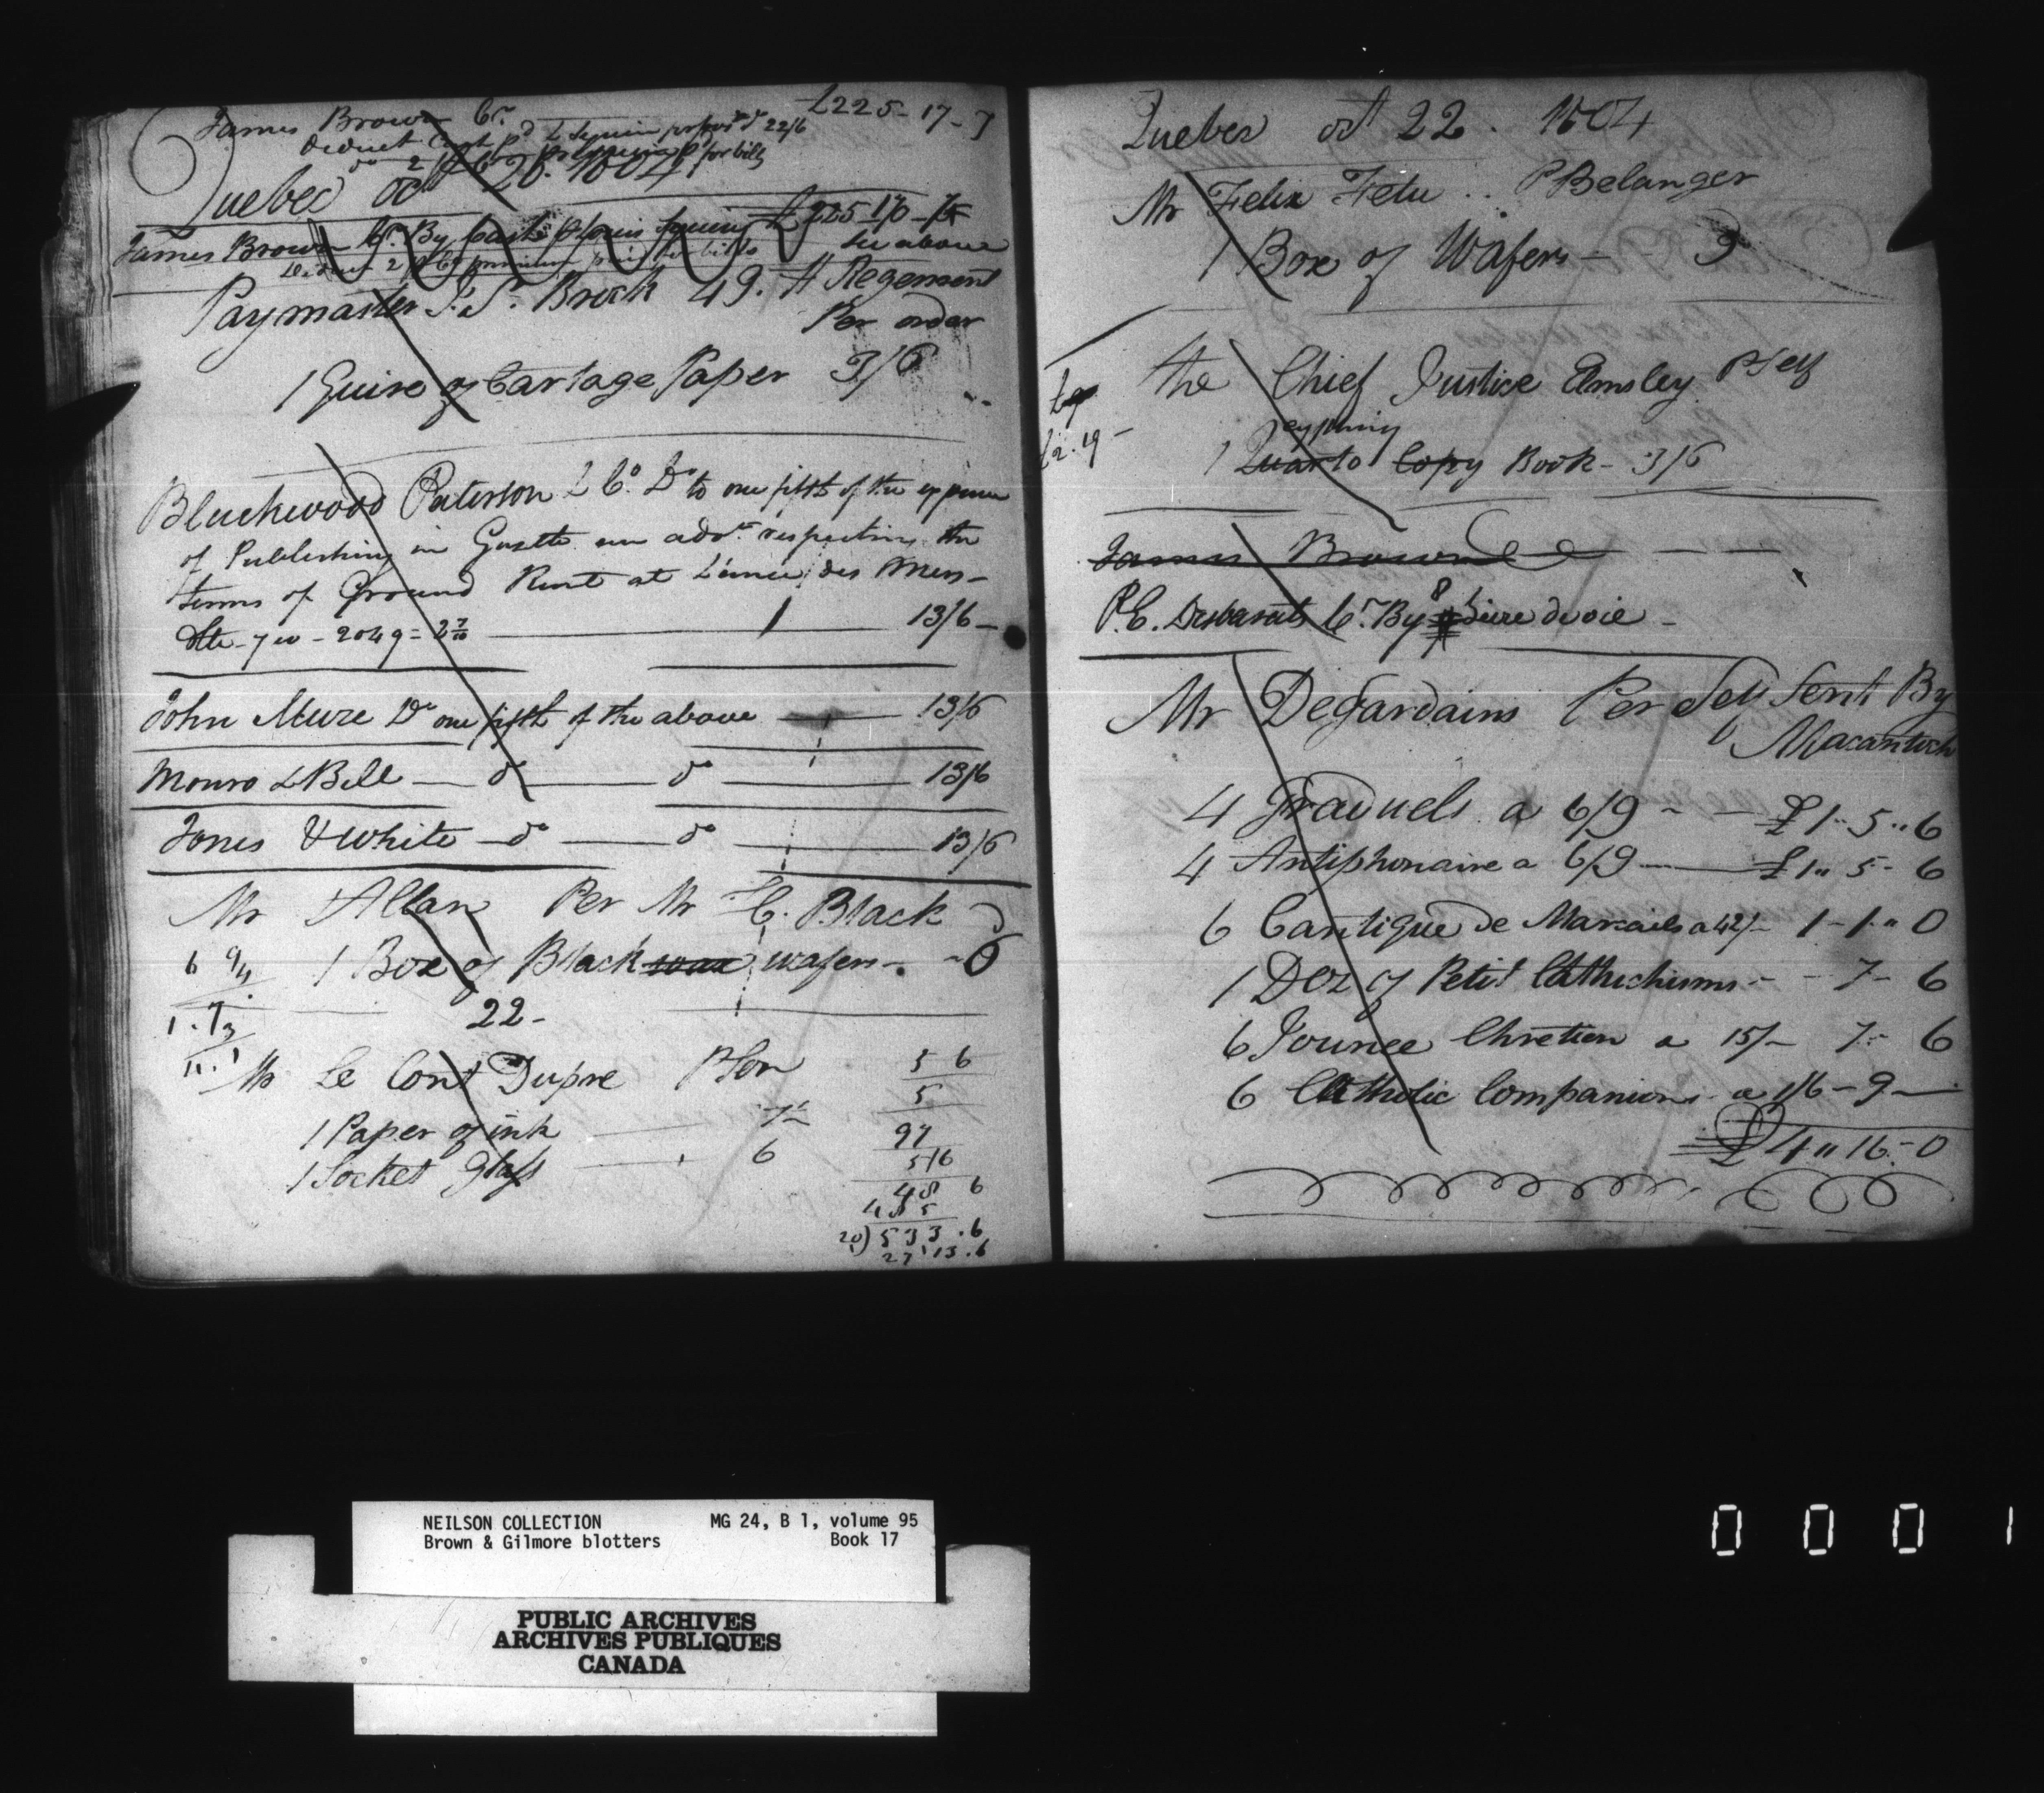 James Brown Cr. £225-17-7
Deduct Cash pd L Seguin 22/6
do 2 for bills
Quebec Oct 20. 1804
James Brown Cr. By Cash P Louis Seguin £225 10
Deduct 2 premium paid for bills see above
Paymaster J. S. Brock 49. th Regement
Per order
1 Quire of Cartage Paper 3/6
Blackwood Paterson & Co. Dr to one fifth of the expence
of Publishing in Gazette an advt. respecting the
terms of Ground Rent at L'ance des Mers-
13/6-
John Mure Dr one fifth of the above 13/6
Monro & Bell do do 13/6
Jones & White do do 13/6
Mr Allan Per Mr H. Black
6 9/4 1 Box of Black wax wafers
1.7/3 22-
11.1
Mr Le Cont Dupre P Son
1 Paper of ink 7½
1 Socket Glass 6
5 6
5
97
5/6
48 6
485
20) 533.6
27 13.6
Quebec oct 22. 1804
Mr Felix Fetu .. P Belanger
1 Box of Wafers - 9
the Chief Justice Elmsley P Self
£2.19-
cyphing
1 Quarto Copy Book - 3/6
James Brown
P. E. Desbarats Cr. By 8 Livre de vie -
Mr DeJardains Per Self Sent By
Macantosh
4 Graduels a 6/9 - £1..5..6
4 Antiphonaire a 6/9 £1..5-6
6 Cantique de Marcails a 42/- 1-1..0
1 Doz of Petit Cathechisms - - 7-6
6 Journee Chretien a 15/- 7-6
6 Catholic Companions a 1/6 - 9-
£4..16.-0
NEILSON COLLECTION MG 24, B 1, volume 95
Brown & Gilmore blotters Book 17
PUBLIC ARCHIVES
ARCHIVES PUBLIQUES
CANADA
0 0 0 1